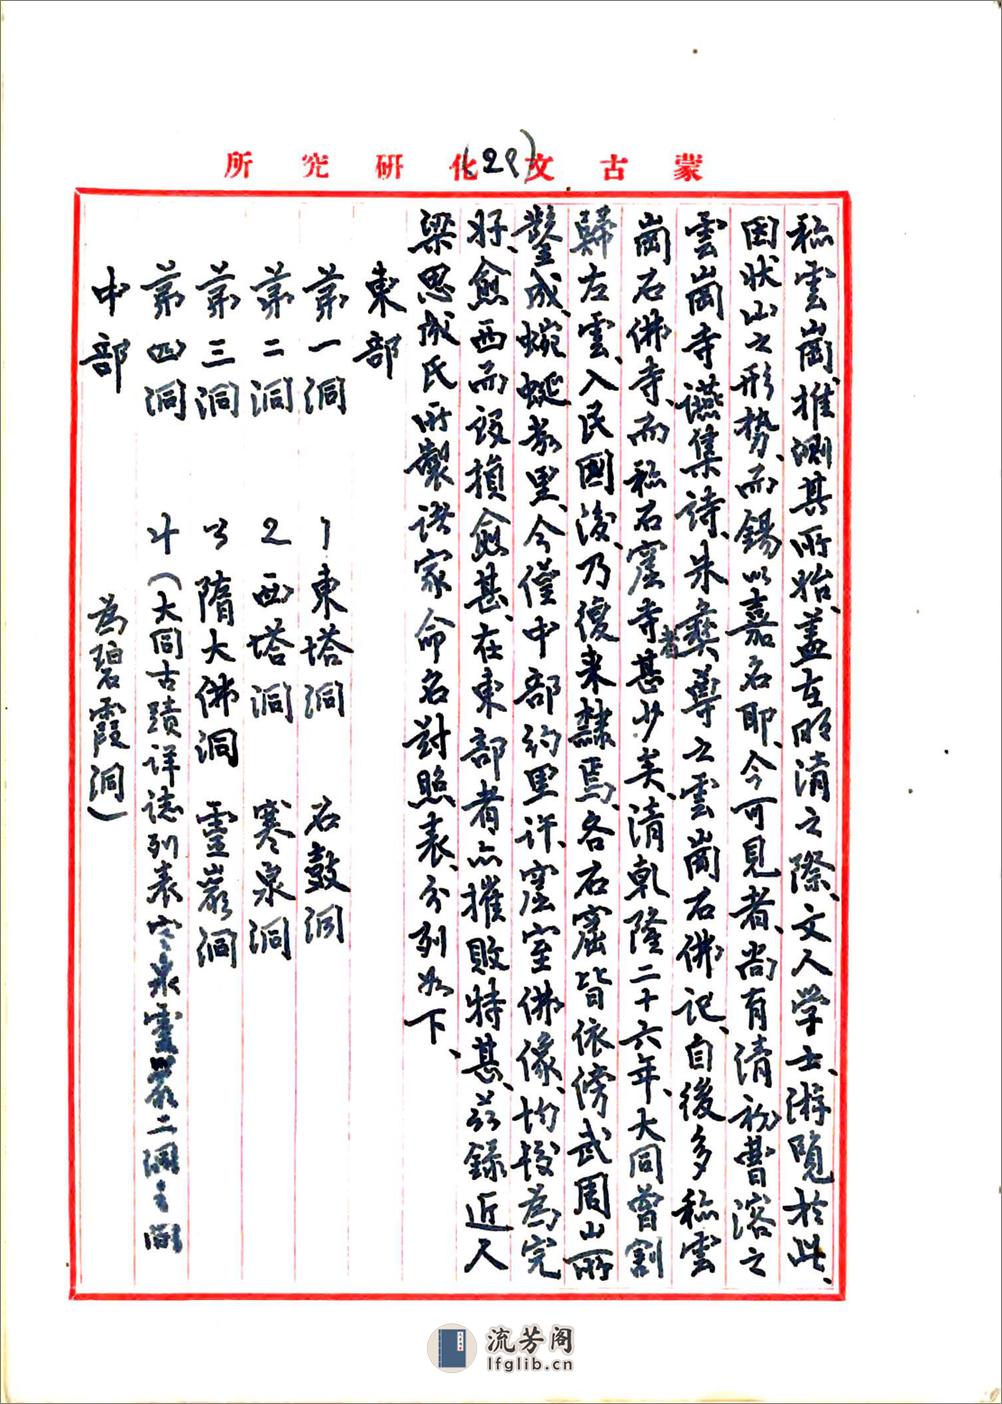 蒙古文化研究所
(29)
称雲崗、推測其所始、蓋在明清之際、文人学士、游覧於此、
因状山之形势、而錫以嘉名耶、今可見者、尚有清初曹溶之
雲崗寺讌集詩、朱彝尊之雲崗石佛記、自後多称雲
崗石佛寺、而称石窟寺者甚少矣、清乾隆二十六年、大同曾割
歸左雲、入民國後、乃復来隸焉、各石窟皆依傍武周山所
鑿成、蜿蜒数里、今僅中部約里许、窟室佛像、均較為完
好、愈西而毁損愈甚、在東部者亦摧敗特甚、兹録近人
梁思成氏所製諸家命名对照表、分列如下、
東部
第一洞 1東塔洞 石鼓洞
第二洞 2西塔洞 寒泉洞
第三洞 3隋大佛洞 靈巖洞
第四洞 4(大同古蹟详志列表寒泉靈巖二洞之間
為碧霞洞)
中部
流芳阁
lfglib.cn